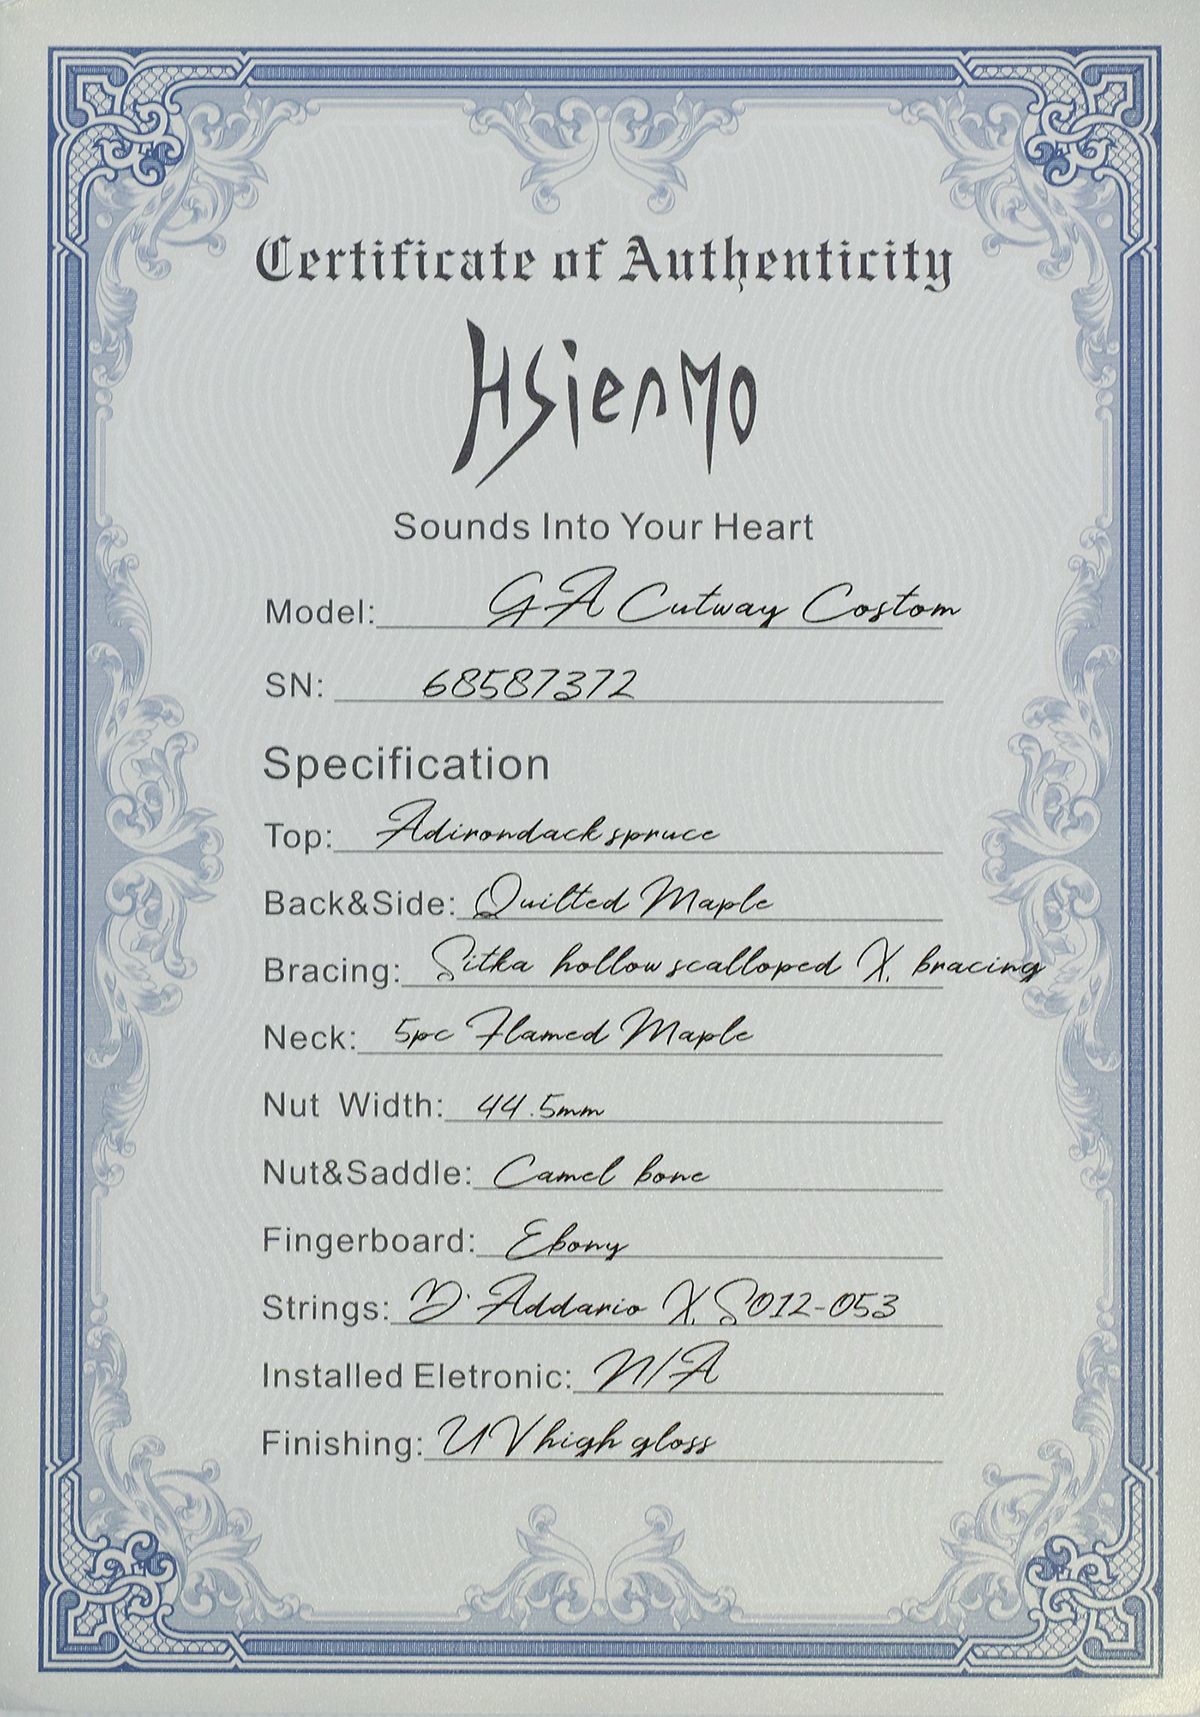 Certificate of Authenticity
HSienMO
Sounds Into Your Heart
Model: GA Cutway Costom
SN: 68587372
Specification
Top: Adirondack spruce
Back&Side: Quilted Maple
Bracing: Sitka hollow scalloped X. bracing
Neck: 5pc Flamed Maple
Nut Width: 44.5mm
Nut&Saddle: Camel bone
Fingerboard: Ebony
Strings: D'Addario X.S012-053
Installed Eletronic: N/A
Finishing: UV high gloss